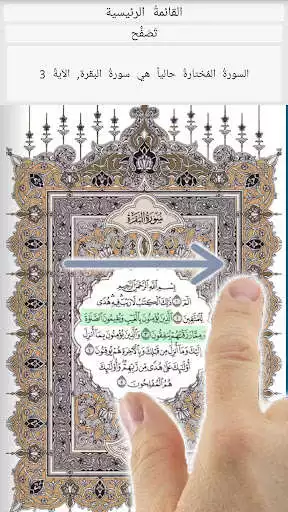 القائمةُ الرئيسية
تَصَفُّح
السورةُ المُختارةُ حالياً هي سورةُ البقرة, الآيةُ 3
سُورَةُ البَقَرَةِ
بِسْمِ اللَّهِ الرَّحْمَٰنِ الرَّحِيمِ
الٓمٓ ۝١ ذَٰلِكَ ٱلْكِتَٰبُ لَا رَيْبَ فِيهِ هُدًى
لِّلْمُتَّقِينَ ۝٢ ٱلَّذِينَ يُؤْمِنُونَ بِٱلْغَيْبِ وَيُقِيمُونَ ٱلصَّلَوٰةَ
وَمِمَّا رَزَقْنَٰهُمْ يُنفِقُونَ ۝٣ وَٱلَّذِينَ يُؤْمِنُونَ بِمَآ أُنزِلَ
إِلَيْكَ وَمَآ أُنزِلَ مِن قَبْلِكَ وَبِٱلْءَاخِرَةِ هُمْ يُوقِنُونَ ۝٤
أُو۟لَٰٓئِكَ عَلَىٰ هُدًى مِّن رَّبِّهِمْ وَأُو۟لَٰٓئِكَ
هُمُ ٱلْمُفْلِحُونَ ۝٥